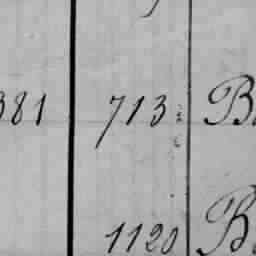 381 713 B
1120 B